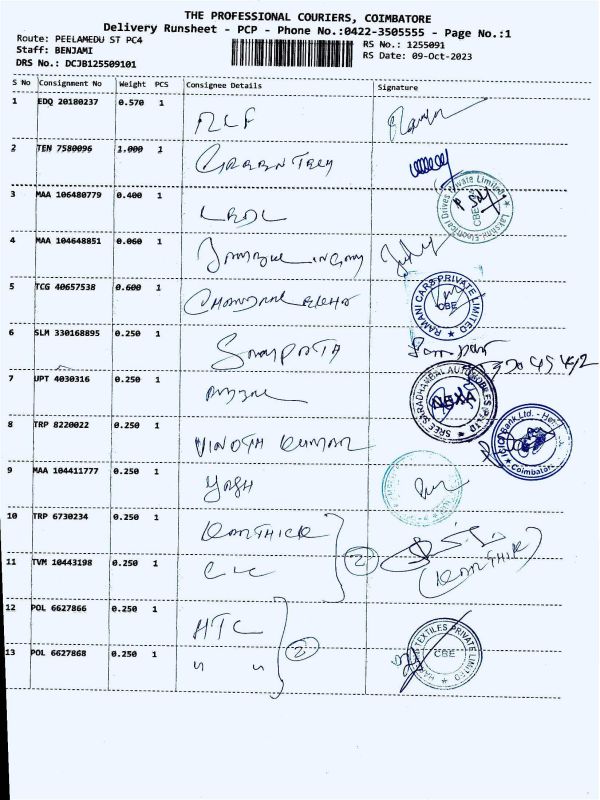 THE PROFESSIONAL COURIERS, COIMBATORE
Delivery Runsheet - PCP - Phone No.:0422-3505555 - Page No.:1
Route: PEELAMEDU ST PC4
RS No.: 1255091
Staff: BENJAMI
RS Date: 09-Oct-2023
DRS No.: DCJB125509101
S No Consignment No Weight PCS Consignee Details Signature
1 EDQ 20180237 0.570 1
2 TEN 7580096 1.000 1
3 MAA 106480779 0.400 1
4 MAA 104648851 0.060 1
5 TCG 40657538 0.600 1
6 SLM 330168895 0.250 1
7 UPT 4030316 0.250 1
8 TRP 8220022 0.250 1 VINOTH KUMAR
9 MAA 104411777 0.250 1 YASH
10 TRP 6730234 0.250 1 KARTHICK
11 TVM 10443198 0.250 1 2 (KARTHIK)
12 POL 6627866 0.250 1 HTC
13 POL 6627868 0.250 1 " " 2
Lakshmi Electrical Drives Private Limited
CBE
RAMANI CARS PRIVATE LIMITED
CBE
SREE SARADHAMBAL AUTOMOBILES PVT LTD
NEXA
Bank Ltd.
Coimbatore
TEXTILES PRIVATE LIMITED
CBE